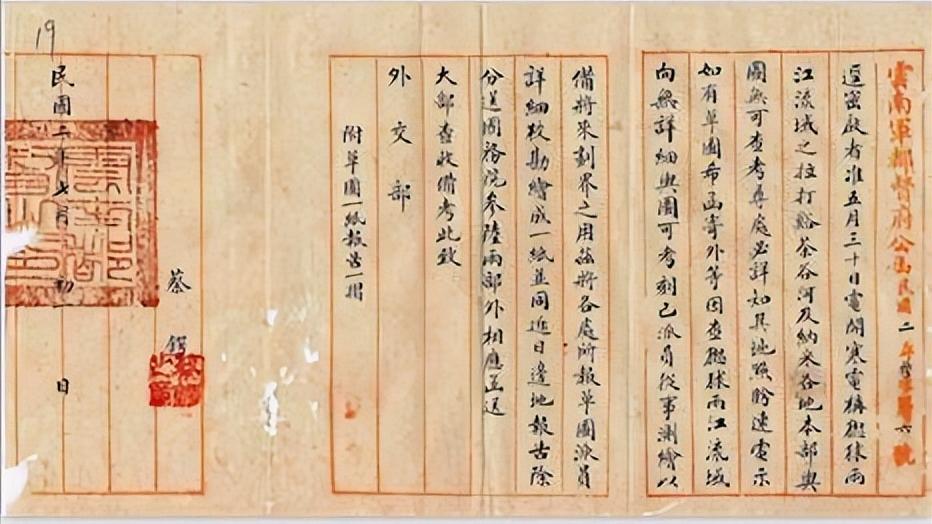 雲南軍都督府公函民國二年第六號
逕密啟者准五月三十日電開寒電稱俅兩
江流域之拉打谿茶谷河及納采各地本部輿
圖無可查考尊處必詳知其地照盼速電示
如有草圖希函寄外等因查俅兩江流域
向無詳細輿圖可考刻已派員從事測繪以
備將來劃界之用茲將各處所報草圖派員
詳細校勘繪成一紙並同近日邊地報告除
分送國務院參陸兩部外相應函送
大部查收備考此致
外交部
附草圖一紙報告一摺
蔡鍔
民國二年七月初一日
雲南都
督之印
19